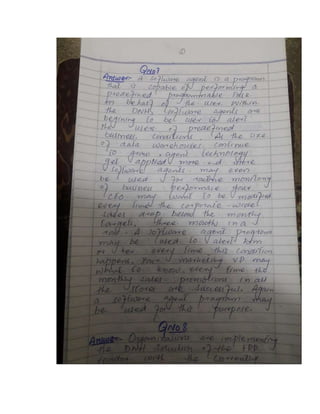 ①
QNo7
Answer:- A software agent is a program
that is capable of performing a
predefined programmable task
on behalf of the user. Within
the DWH software agents are
begining to be used to alert
the users of predefined
business conditions. As the size
of data warehouses continue
to grow, agent technology
get applied more and more
software agents may even
be used for routine monitoring
of business performance for
CEO may want to be notified
every time the corporate-wide
sales drop below the monthly
targets, three months in a
row. A software agent program
may be used to alert him
or her every time this condition
happens. Your marketing VP may
want to know every time the
monthly sales promotions in all
the stores are successful. Again
a software agent program may
be used for this purpose.
QNo8
Answer:- Organizations are implementing
the DWH solution of the ERP
vendor with the currently